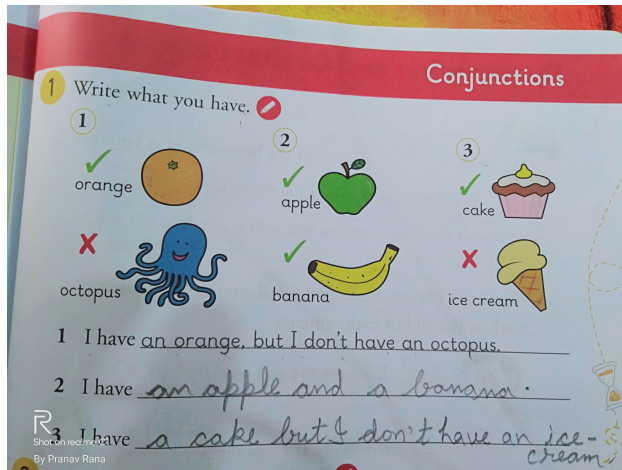 Conjunctions
1 Write what you have.
1
2
3
orange
apple
cake
octopus
banana
ice cream
1 I have an orange, but I don't have an octopus.
2 I have an apple and a banana.
3 I have a cake but I don't have an ice-
cream
R
Shot on realme C
By Pranav Rana